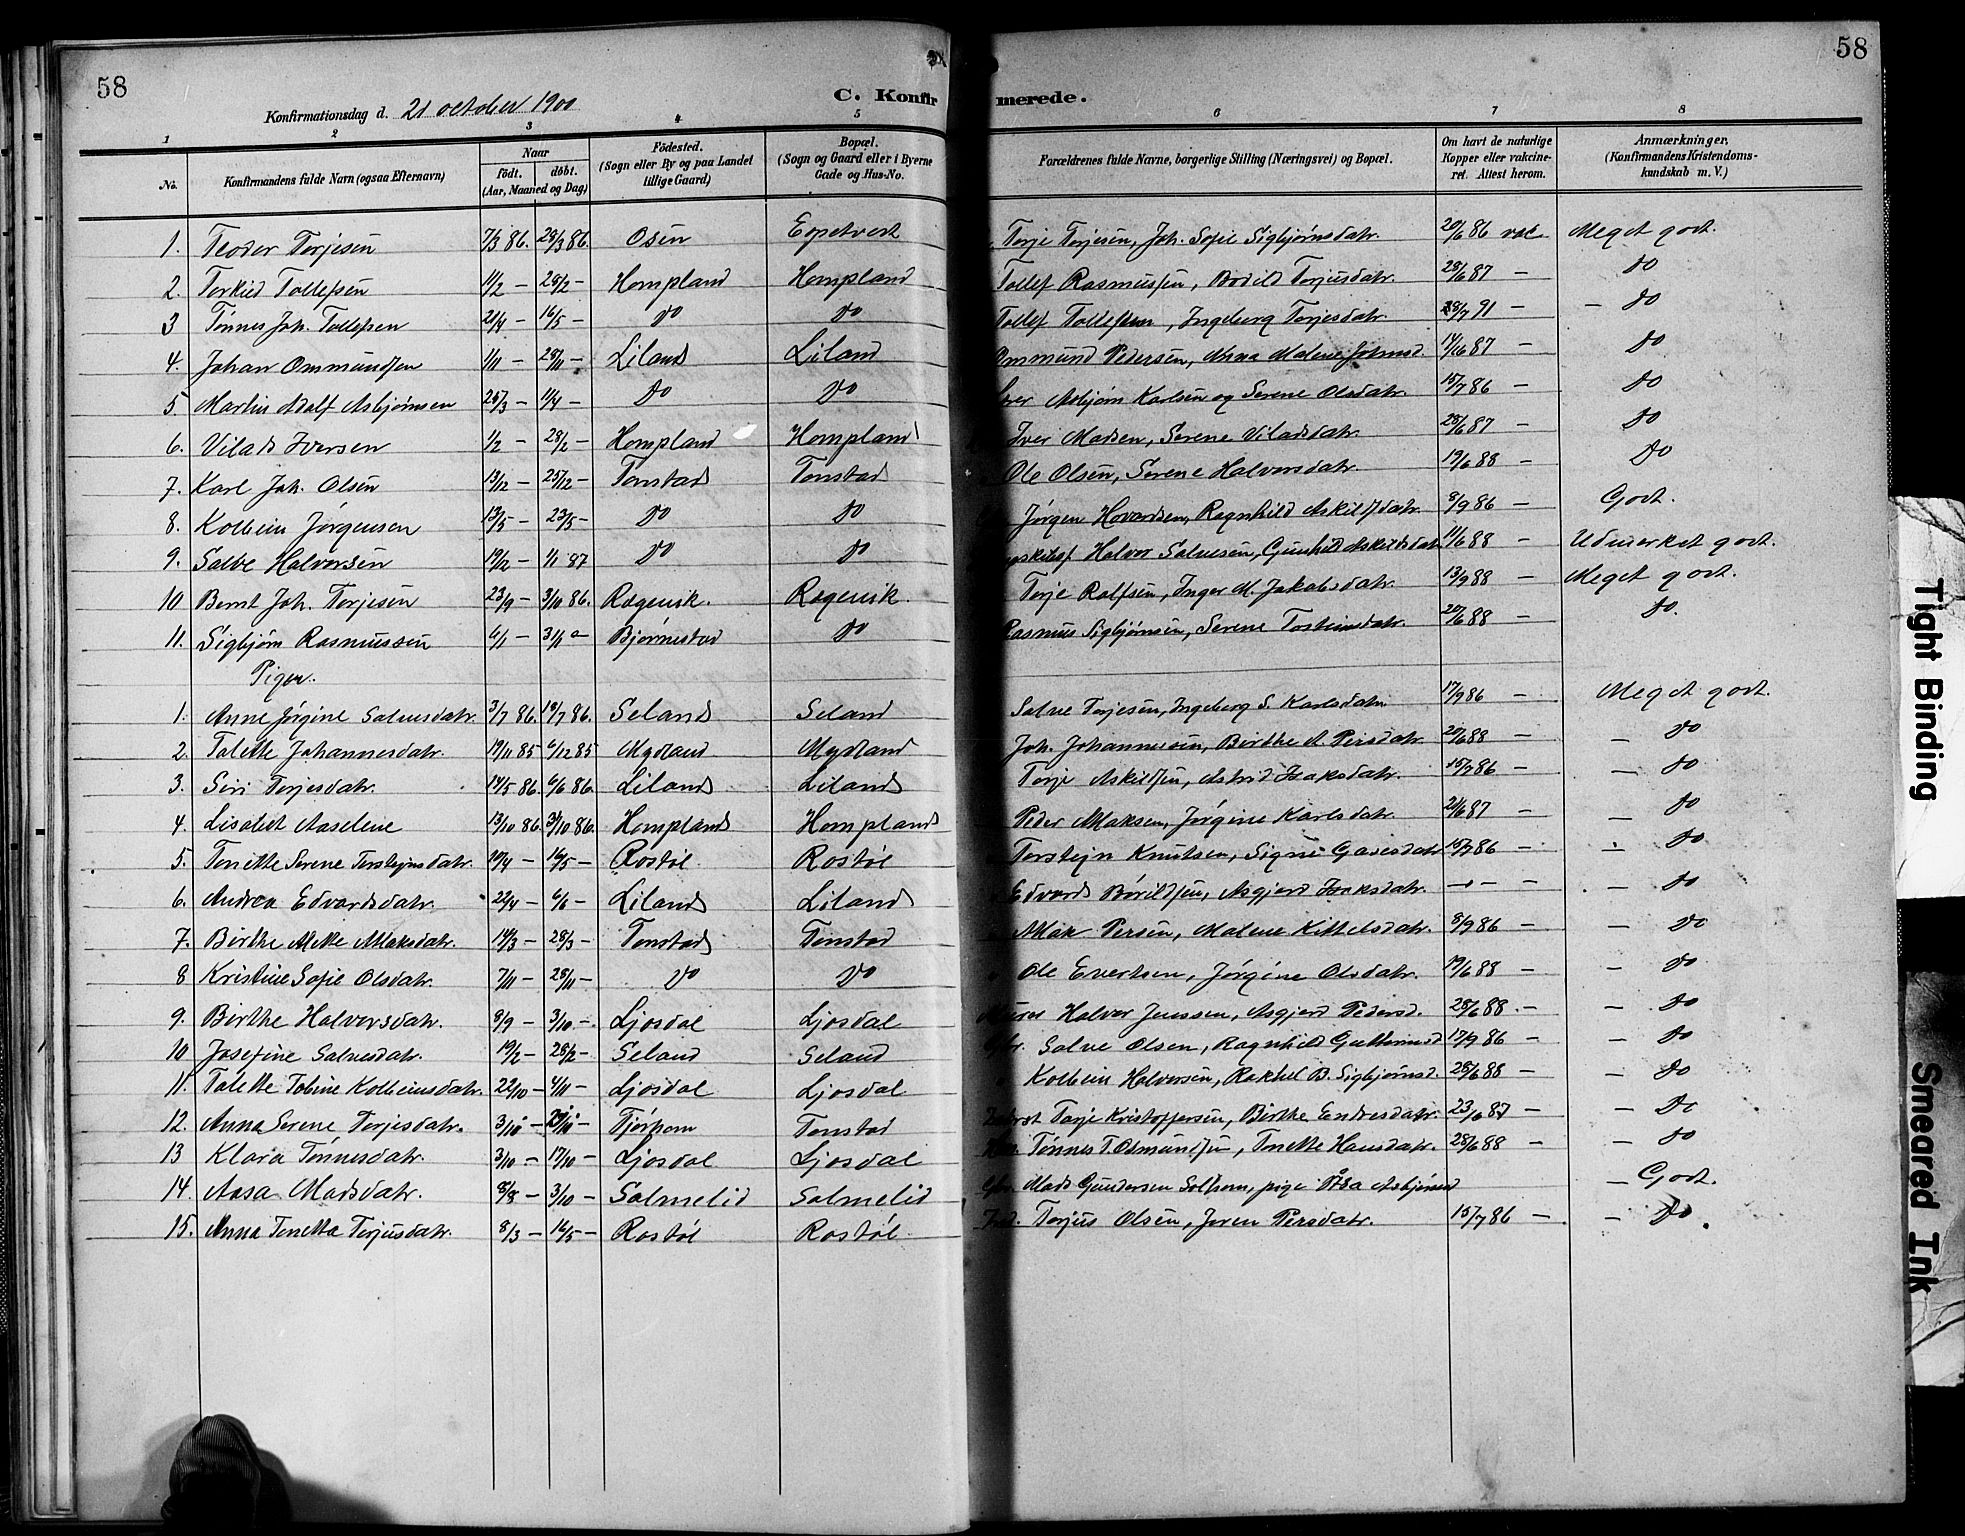 58
58
C. Konfirmerede.
Konfirmationsdag d. 21 october 1900
1 2 3 4 5 6 7 8
No.
Konfirmandens fulde Navn (ogsaa Efternavn)
Naar
födt. döbt.
(Aar, Maaned og Dag)
Födested.
(Sogn eller By og paa Landet
tillige Gaard)
Bopæl.
(Sogn og Gaard eller i Byerne
Gade og Hus-No.
Forældrenes fulde Navne, borgerlige Stilling (Næringsvei) og Bopæl.
Om havt de naturlige
Kopper eller vakcine-
ret. Attest herom.
Anmærkninger.
(Konfirmandens Kristendoms-
kundskab m. V.)
1. Teodor Torjesen 7/3 86. 28/3 86. Osen Eopetvert Torje Torjesen, Joh. Sofie Sigbjørnsdatr. 20/6 86 vac Meget godt.
2. Torkild Tollefsen 11/2 — 28/2 — Hompland Hompland Tollef Rasmussen, Bodild Torjusdatr. 28/6 87 — do
3 Tønnes Joh. Tollefsen 21/4 — 16/5 — do do Tollef Tollefsen, Ingeborg Torjesdatr. 28/7 91 — — do
4. Johan Ommundsen 1/11 — 28/11 — Liland Liland Ommund Pedersen, Anna Malene Johnsd 87 — do
5 Martin Adolf Asbjørnsen 25/3 — 11/4 — do do Asbjørn Karlsen og Serene Olsdatr. 15/7 86 — do
6. Vilads Iversen 1/2 — 28/2 — Hompland Hompland Iver Madsen, Serene Viladsdatr. 28/6 87 — do
7. Karl Joh. Olsen 13/12 — 25/12 — Tonstad Tonstad Ole Olsen, Serene Halvorsdatr. 19/6 88 — do
8. Kolbein Jørgensen 13/5 — 23/5 — do do Jørgen Hovardsen, Ragnhild Askildsdatr. 8/9 86 — Godt.
9. Salve Halvorsen 19/12 — 1/1 87 do do Halvor Salvesen, Gunhild Askildsdatr 11/6 88 — Udmerket godt.
10 Bernt Joh. Torjesen 23/9 — 3/10 86. Rægevik. Rægevik. Torje Rolfsen, Inger M. Jakobsdatr. 13/9 88 — Meget godt.
11. Sigbjørn Rasmussen 6/1 — 31/1 — Bjørnestad do Rasmus Sigbjørnsen, Serene Tosteinsdatr. 20/6 88 — do.
Piger.
1. Anne Jørgine Salvesdatr. 3/7 86. 18/7 86. Seland Seland Salve Torjesen, Ingeborg S. Karlsdatr. 17/9 86 — Meget godt.
2. Talette Johannesdatr. 19/11 85 6/12 85 Mydland Mydland Joh. Johannessen, Birthe A. Persdatr. 20/6 88 — — do
3. Siri Torjesdatr. 14/5 86. 6/6 86. Liland Liland Torje Askildsen, Astrid Isaksdatr. 15/7 86 — — do
4. Lisabet Aaselene 13/10 86. 31/10 86. Hompland Hompland Peder Maksen, Jørgine Karlsdatr. 21/6 87 — — do
5. Tonette Serene Torsteinsdatr. 10/4 — 16/5 — Rostøl Rostøl Torstejn Knutsen, Signe Gasesdatr 15/7 86 — — do
6. Andrea Edvardsdatr. 22/4 — 6/6 — Liland Liland Edvard Børildsen, Asgjerd Isaksdatr. — — — — do
7. Birthe Mette Maksdatr. 14/3 — 28/3 — Tonstad Tonstad Mak Persen, Malene Kittelsdatr. 8/9 86 — — do
8 Kristine Sofie Olsdatr. 7/11 — 28/11 — do do Ole Evertsen, Jørgine Olsdatr. 19/6 88 — — do
9. Birthe Halvorsdatr. 8/9 — 3/10 — Ljosdal Ljosdal Halvor Jenssen, Asgjerd Pedersd. 28/6 88. — — do
10 Josefine Salvesdatr. 19/2 — 28/2 — Seland Seland Gbr. Salve Olsen, Ragnhild Guttormsd 17/9 86 — do
11. Talette Tobine Kolbeinsdatr. 22/10 — 4/11 — Ljosdal Ljosdal Kolbein Halvorsen, Rakhel B. Sigbjørnsd. 28/6 88 — — do
12. Anna Serene Torjesdatr. 3/10 — /10 — Fjørhom Tonstad Torje Kristoffersen, Birthe Endresdatr. 23/6 87 — — do
13 Klara Tønnesdatr. 3/10 — 17/10 — Ljosdal Ljosdal Tønnes T. Osmundsen, Tonette Hansdatr. 28/6 88 — — do
14. Aasa Madsdatr. 8/8 — 3/10 — Salmelid Salmelid Gbr. Mads Gundersen Solhom, pige Åsa Asbjørnsd — Godt.
15. Anna Tonetta Torjusdatr. 8/3 — 16/5 — Rostøl Rostøl. Torjus Olsen, Joren Persdatr. 15/7 86 — — do.
Tight Binding
Smeared Ink